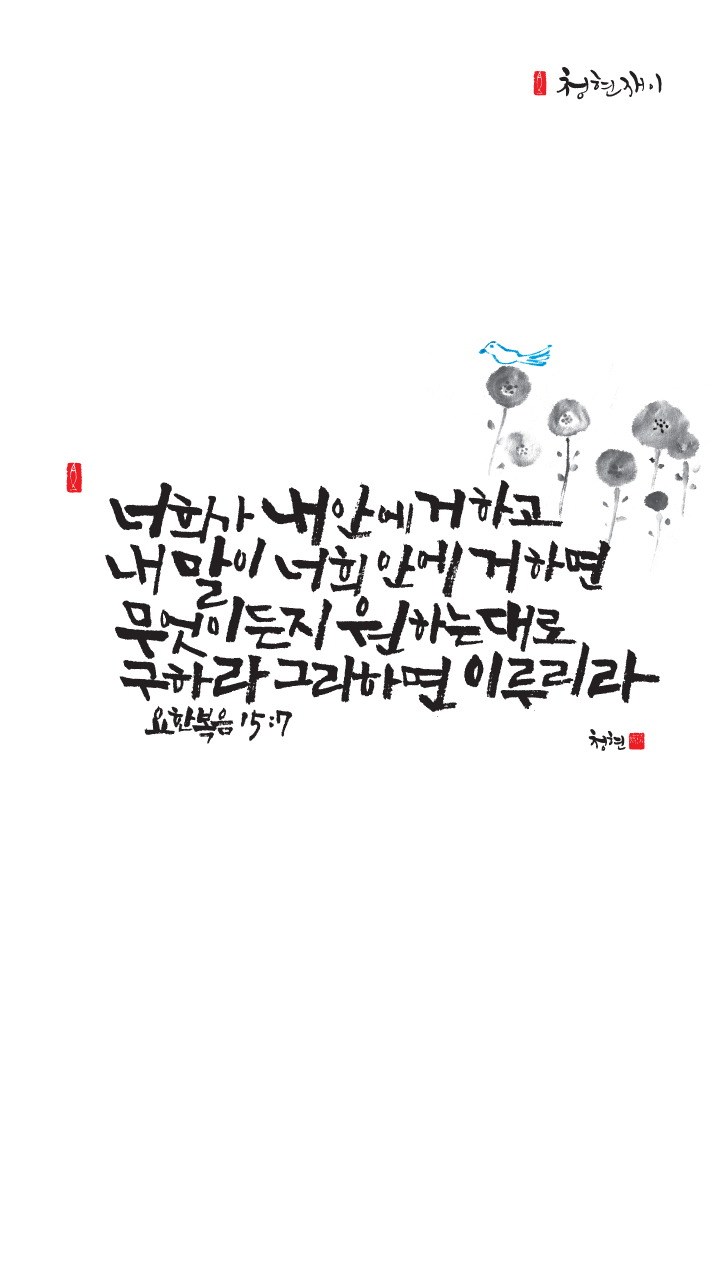 청현재이
너희가 내 안에 거하고
내 말이 너희 안에 거하면
무엇이든지 원하는대로
구하라 그리하면 이루리라
요한복음 15:7
청현